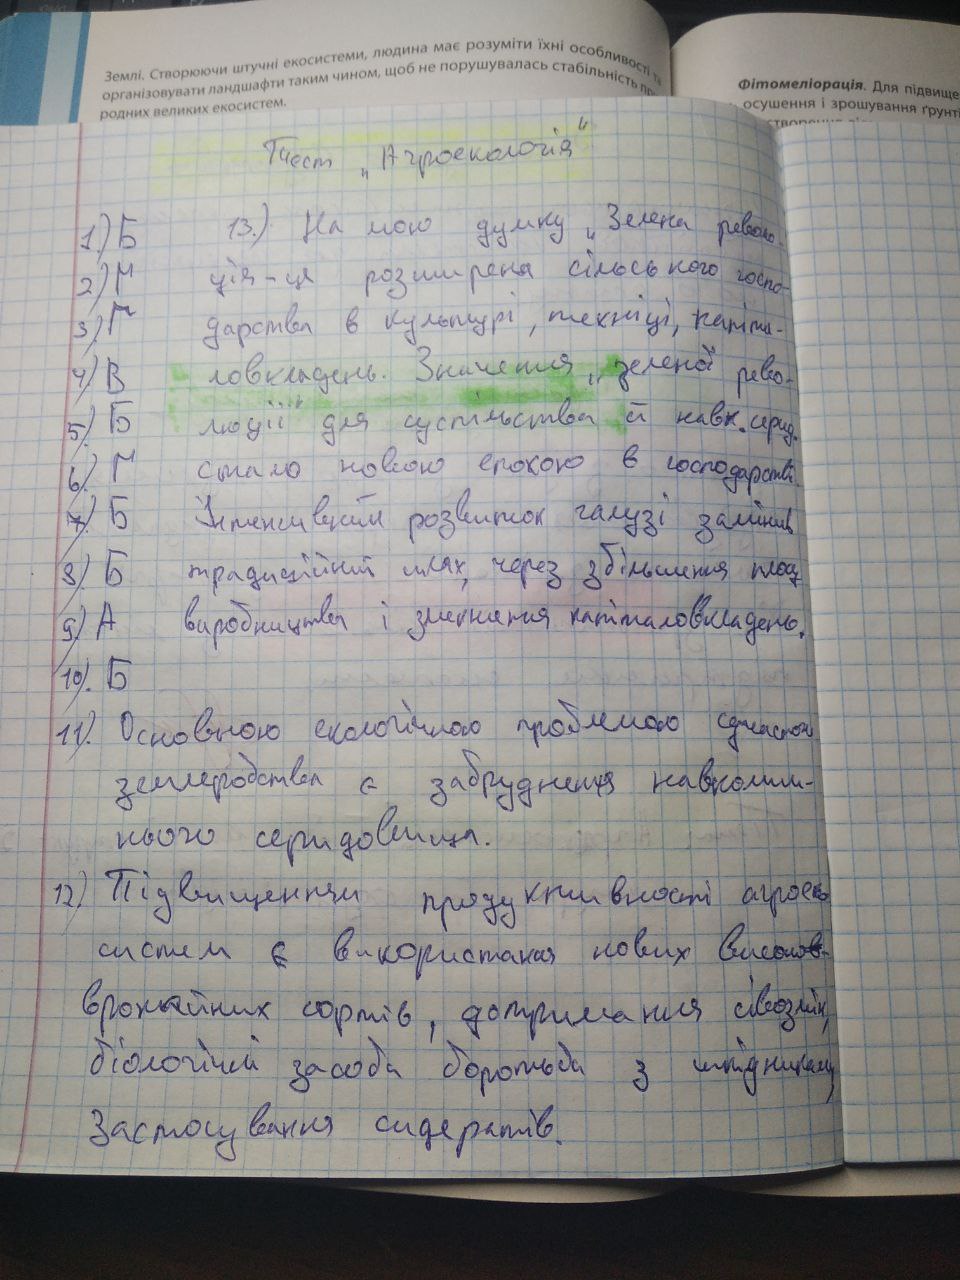 Землі. Створюючи штучні екосистеми, людина має розуміти їхні особливості та
організовувати ландшафти таким чином, щоб не порушувалась стабільність при-
родних великих екосистем.
Фітомеліорація. Для підвище
осушення і зрошування ґрунті
Тест „Агроекологія"
1) Б
2) Г
3) Г
4) В
5) Б
6) Г
7) Б
8) Б
9) А
10). Б
13.) На мою думку „Зелена револю-
ція - це розширена сільського госпо-
дарства в культурі, техніці, капіта-
ловкладень. Значення „зеленої рево-
люції" для суспільства й навк. серид.
стало новою епокою в господарстві.
Інтенсивний розвиток галузі замінив
традиційний шлях, через збільшення площ
виробництва і зменшення капіталовкладень.
11). Основною екологічною проблемою сучасного
землеробства є забруднення навколиш-
нього серидовища.
12) Підвищенням продуктивності агроеко
систем є використання нових високов-
врожайних сортів, дотримання сівозмін,
біологічні засоби боротьби з шкідниками,
Застосування сидератів.